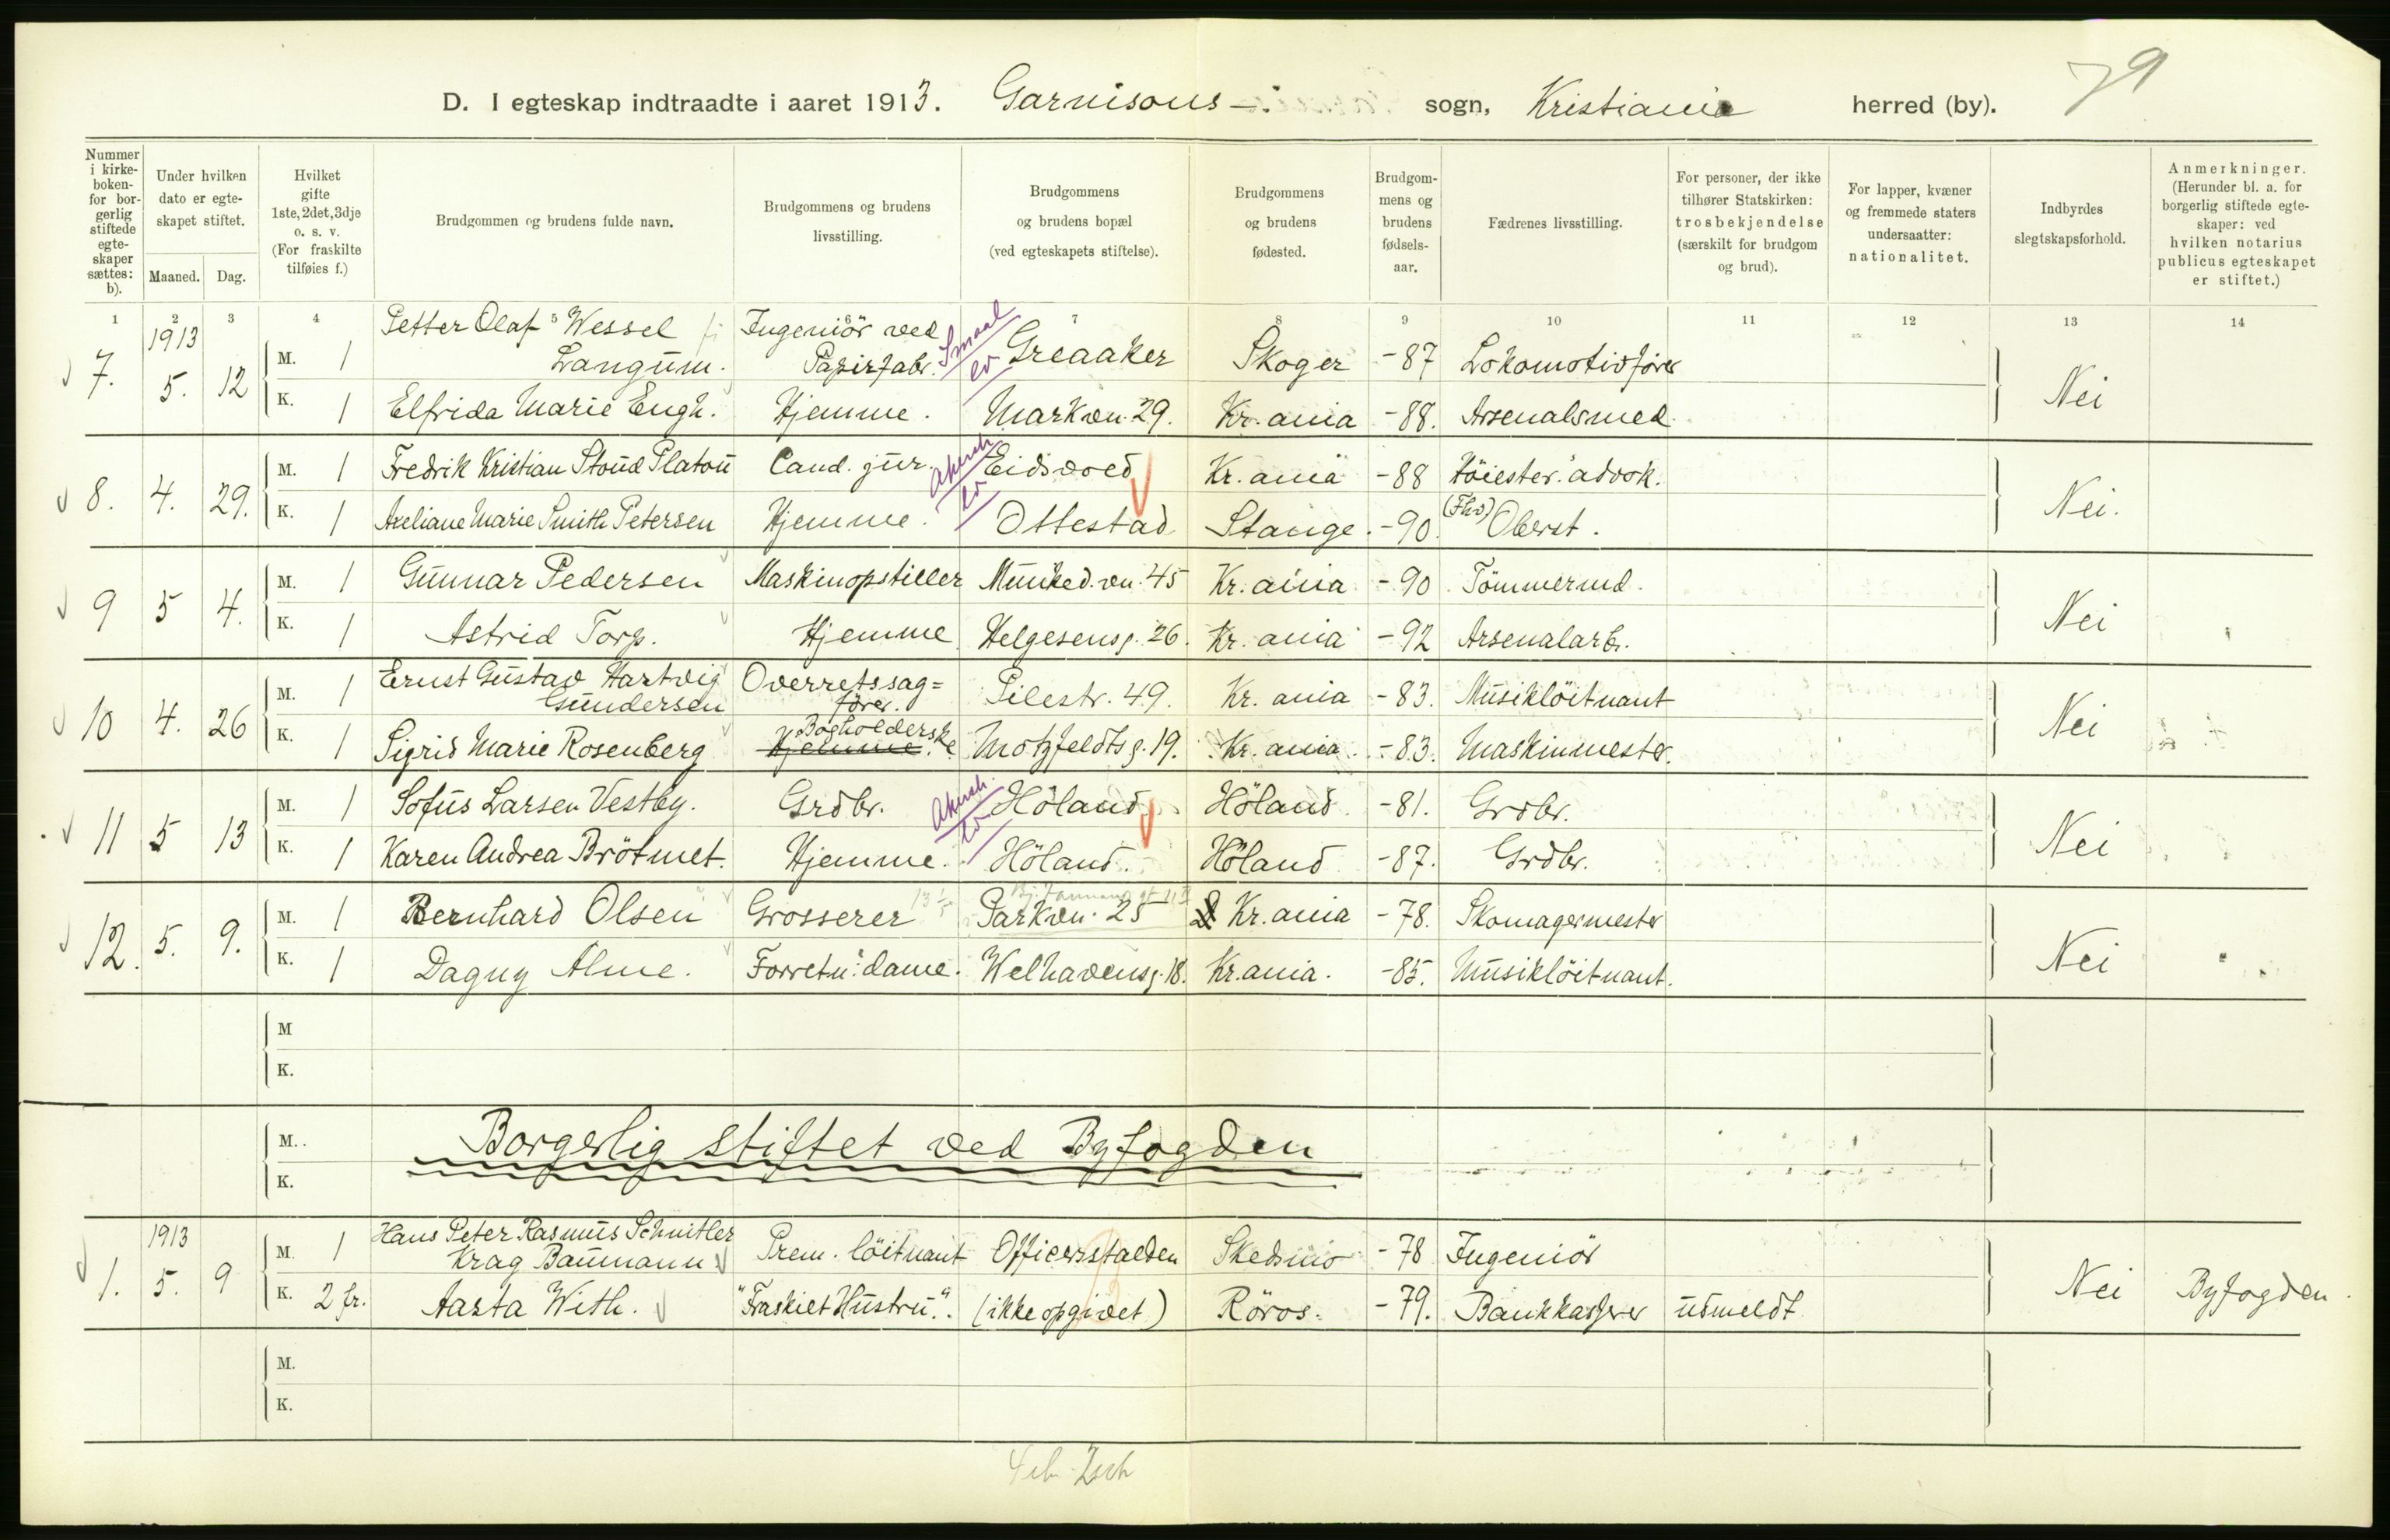 D. I egteskap indtraadte i aaret 1913. Garnisons- sogn, Kristiania herred (by). 79
Nummer i kirkeboken- for borgerlig stiftede egteskaper sættes: b).
Under hvilken dato er egteskapet stiftet.
Maaned. Dag.
Hvilket gifte 1ste, 2det, 3dje o. s. v. (For fraskilte tilføies f.)
Brudgommen og brudens fulde navn.
Brudgommens og brudens livsstilling.
Brudgommens og brudens bopæl (ved egteskapets stiftelse).
Brudgommens og brudens fødested.
Brudgommens og brudens fødsels- aar.
Fædrenes livsstilling.
For personer, der ikke tilhører Statskirken: trosbekjendelse (særskilt for brudgom og brud).
For lapper, kvæner og fremmede staters undersaatter: nationalitet.
Indbyrdes slegtskapsforhold.
Anmerkninger. (Herunder bl. a. for borgerlig stiftede egteskaper: ved hvilken notarius publicus egteskapet er stiftet.)
1 2 3 4 5 6 7 8 9 10 11 12 13 14
1913
7. 5. 12 M. 1 Petter Olaf Wessel Langum. Ingeniör ved Papirfabr. Smaal Greaaker Skoger -87 Lokomotivförer Nei
K. 1 Elfrida Marie Engh. Hjemme. Markvn. 29. Kr.ania -88. Arsenalsmed
8. 4. 29. M. 1 Fredrik Kristian Stoud Platou Cand. jur. Akersh Eidsvold Kr.ania -88 Höiester.advok. Nei.
K. 1 Axeliane Marie Smith Petersen Hjemme. Ottestad Stange. -90. (Fhv) Oberst.
9 5 4. M. 1 Gunnar Pedersen Maskinopstiller Munked.vn. 45 Kr.ania -90. Tömmermd. Nei
K. 1 Astrid Torp. Hjemme Helgesensg. 26. Kr.ania -92 Arsenalarb.
10 4. 26 M. 1 Ernst Gustav Hartvig Gundersen Overretssag=förer. Pilestr. 49. Kr.ania -83. Musiklöitnant Nei
K. 1 Sigrid Marie Rosenberg Hjemme. Bogholderske Motzfeldtsg. 19. Kr.ania. -83. Maskinmester.
11 5 13 M. 1 Sofus Larsen Vestby. Grdbr. Akersh. Höland Höland -81. Grdbr. Nei
K. 1 Karen Andrea Brötmet. Hjemme. Höland. Höland -87. Grdbr.
12. 5. 9. M. 1 Bernhard Olsen Grosserer Parkvn. 25 Kr.ania -78. Skomagermester Nei
K. 1 Dagny Alme. Forretn:dame. Welhavensg. 18. Kr.ania. -85. Musiklöitnant.
M
K.
M. Borgerlig stiftet ved Byfogden
K.
1913
1. 5. 9 M. 1 Hans Peter Rasmus Schnitler Krag Baumann Prem. löitnant Officersstalden Skedsmo -78 Ingeniör Nei Byfogden.
K. 2 fr. Aasta With. "Fraskilt Hustru". (ikke opgivet) Röros. -79. Bankkasserer utmeldt
M.
K.